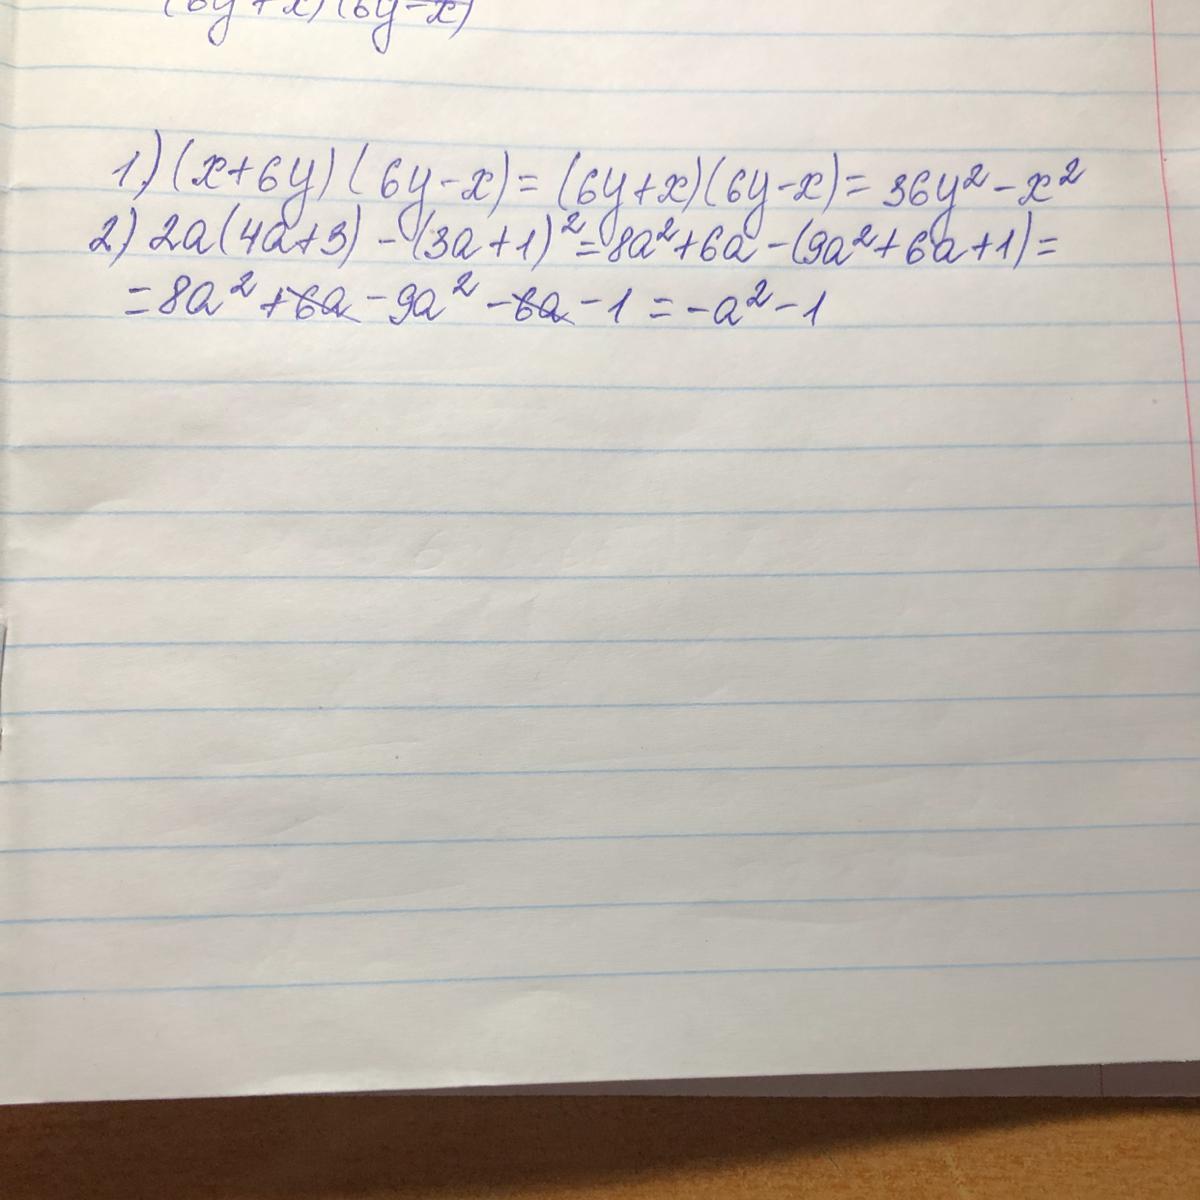 (6y+x)(6y-x)
1) (x+6y)(6y-x)=(6y+x)(6y-x)=36y²-x²
2) 2a(4a+3)-(3a+1)²=8a²+6a-(9a²+6a+1)=
=8a²+6a-9a²-6a-1=-a²-1